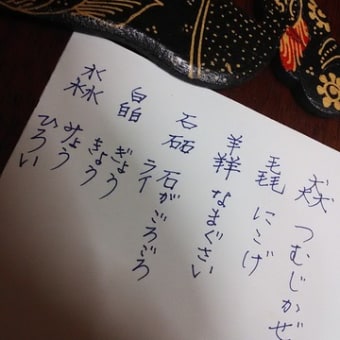 猋 つむじかぜ
毳 にこげ
羴 なまぐさい
磊 石がごろごろ
ライ
皛 ぎょう
きょう
淼 みょう
ひろい